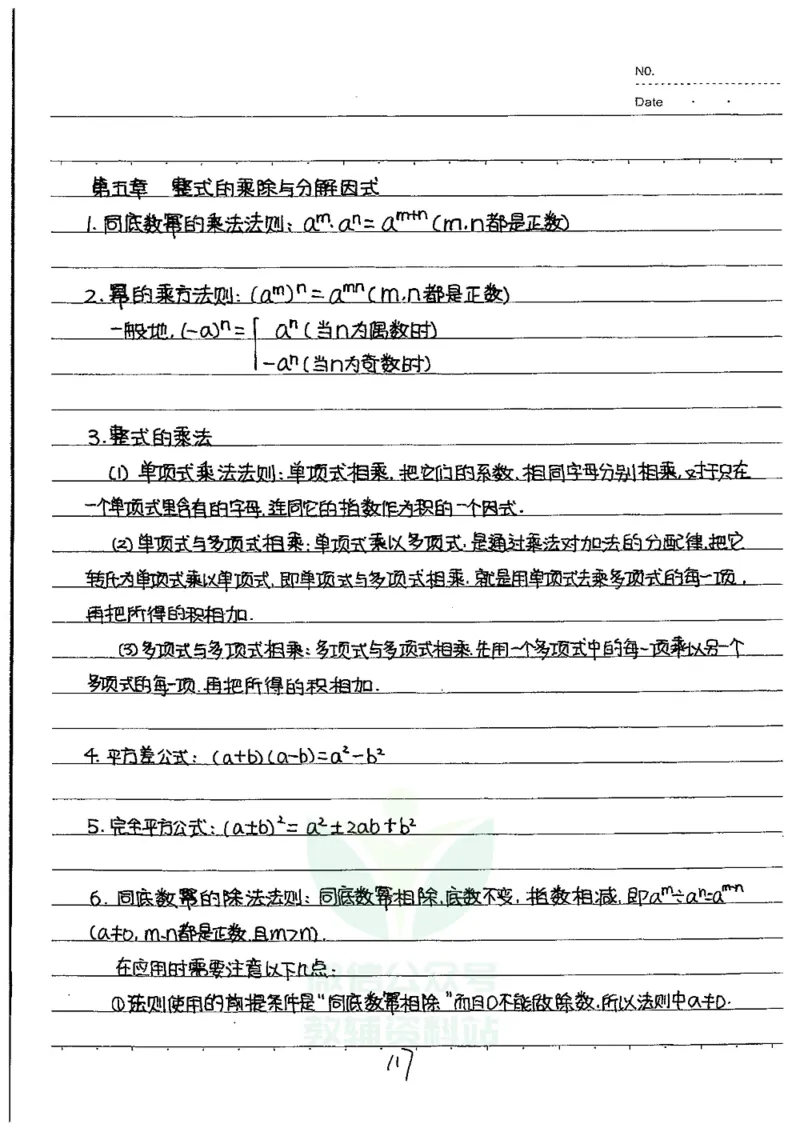 NO.
Date
第五章 整式的乘除与分解因式
1. 同底数幂的乘法法则: aᵐ·aⁿ=aᵐ⁺ⁿ(m,n都是正数)
2. 幂的乘方法则:(aᵐ)ⁿ=aᵐⁿ(m,n都是正数)
一般地,(-a)ⁿ={ aⁿ(当n为偶数时)
-aⁿ(当n为奇数时)
3.整式的乘法
(1) 单项式乘法法则:单项式相乘,把它们的系数,相同字母分别相乘,对于只在
一个单项式里含有的字母,连同它的指数作为积的一个因式.
(2)单项式与多项式相乘:单项式乘以多项式,是通过乘法对加法的分配律,把它
转化为单项式乘以单项式,即单项式与多项式相乘,就是用单项式去乘多项式的每一项,
再把所得的积相加.
(3)多项式与多项式相乘:多项式与多项式相乘,先用一个多项式中的每一项乘以另一个
多项式的每一项,再把所得的积相加.
4. 平方差公式:(a+b)(a-b)=a²-b²
5. 完全平方公式:(a±b)²=a²±2ab+b²
6. 同底数幂的除法法则:同底数幂相除,底数不变,指数相减,即aᵐ÷aⁿ=aᵐ⁻ⁿ
(a≠0,m,n都是正数,且m>n).
在应用时需要注意以下几点:
①法则使用的前提条件是"同底数幂相除"而且0不能做除数,所以法则中a≠0.
微信公众号
教辅资料站
117